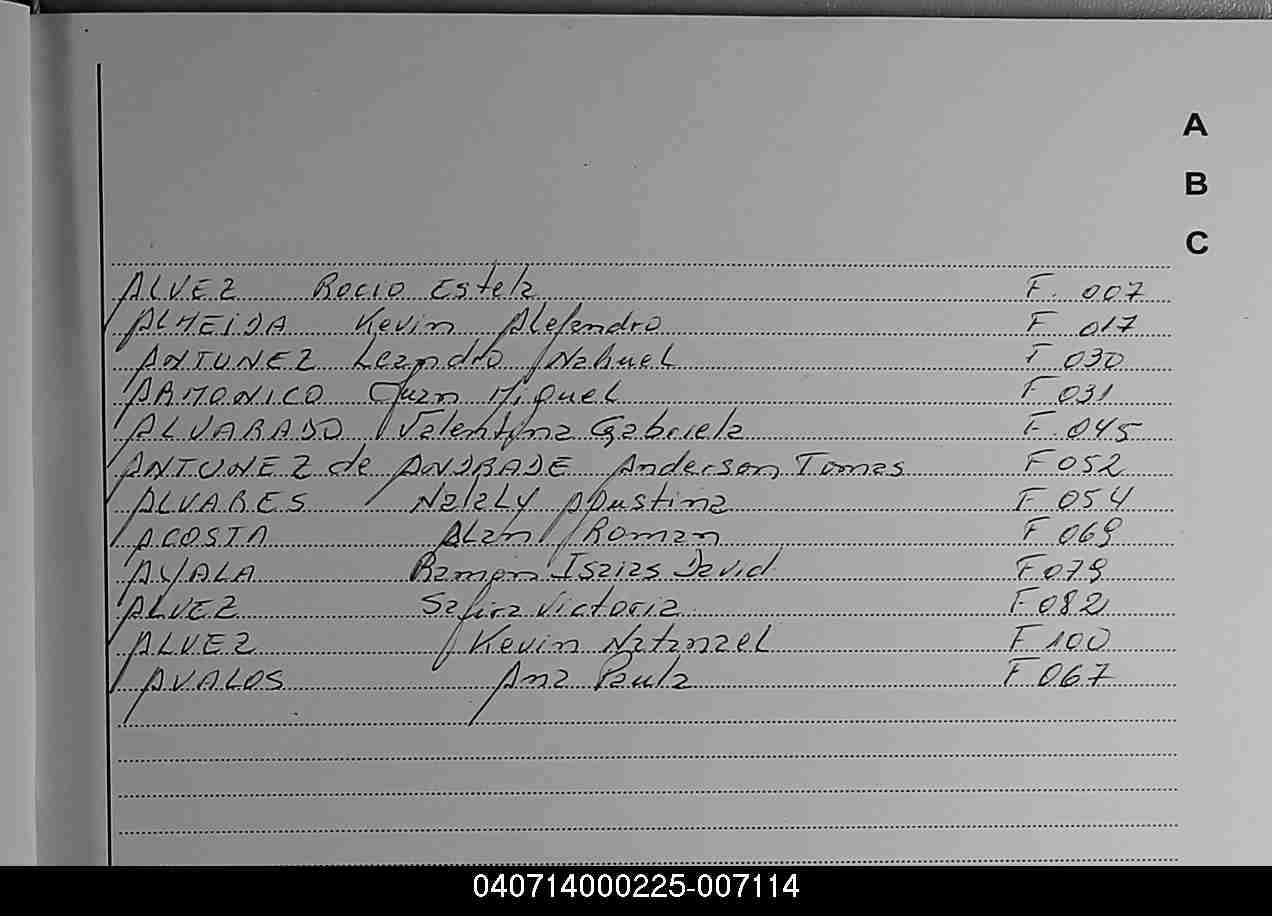 A
B
C
ALVEZ Rocio Estela F. 007
ALMEIDA Kevin Alejandro F 017
ANTUNEZ Leandro Nahuel F 030
ARMONICO Juan Miguel F 031
ALVARADO Valentina Gabriela F. 045
ANTUNEZ de ANDRADE Anderson Tomas F 052
ALVARES Nalaly Agustina F 054
ACOSTA Alan Roman F 069
AYALA Ramon Isaias David F 079
ALVEZ Safira Victoria F. 082
ALVEZ Kevin Natanael F 100
AVALOS Ana Paula F 067
040714000225-007114